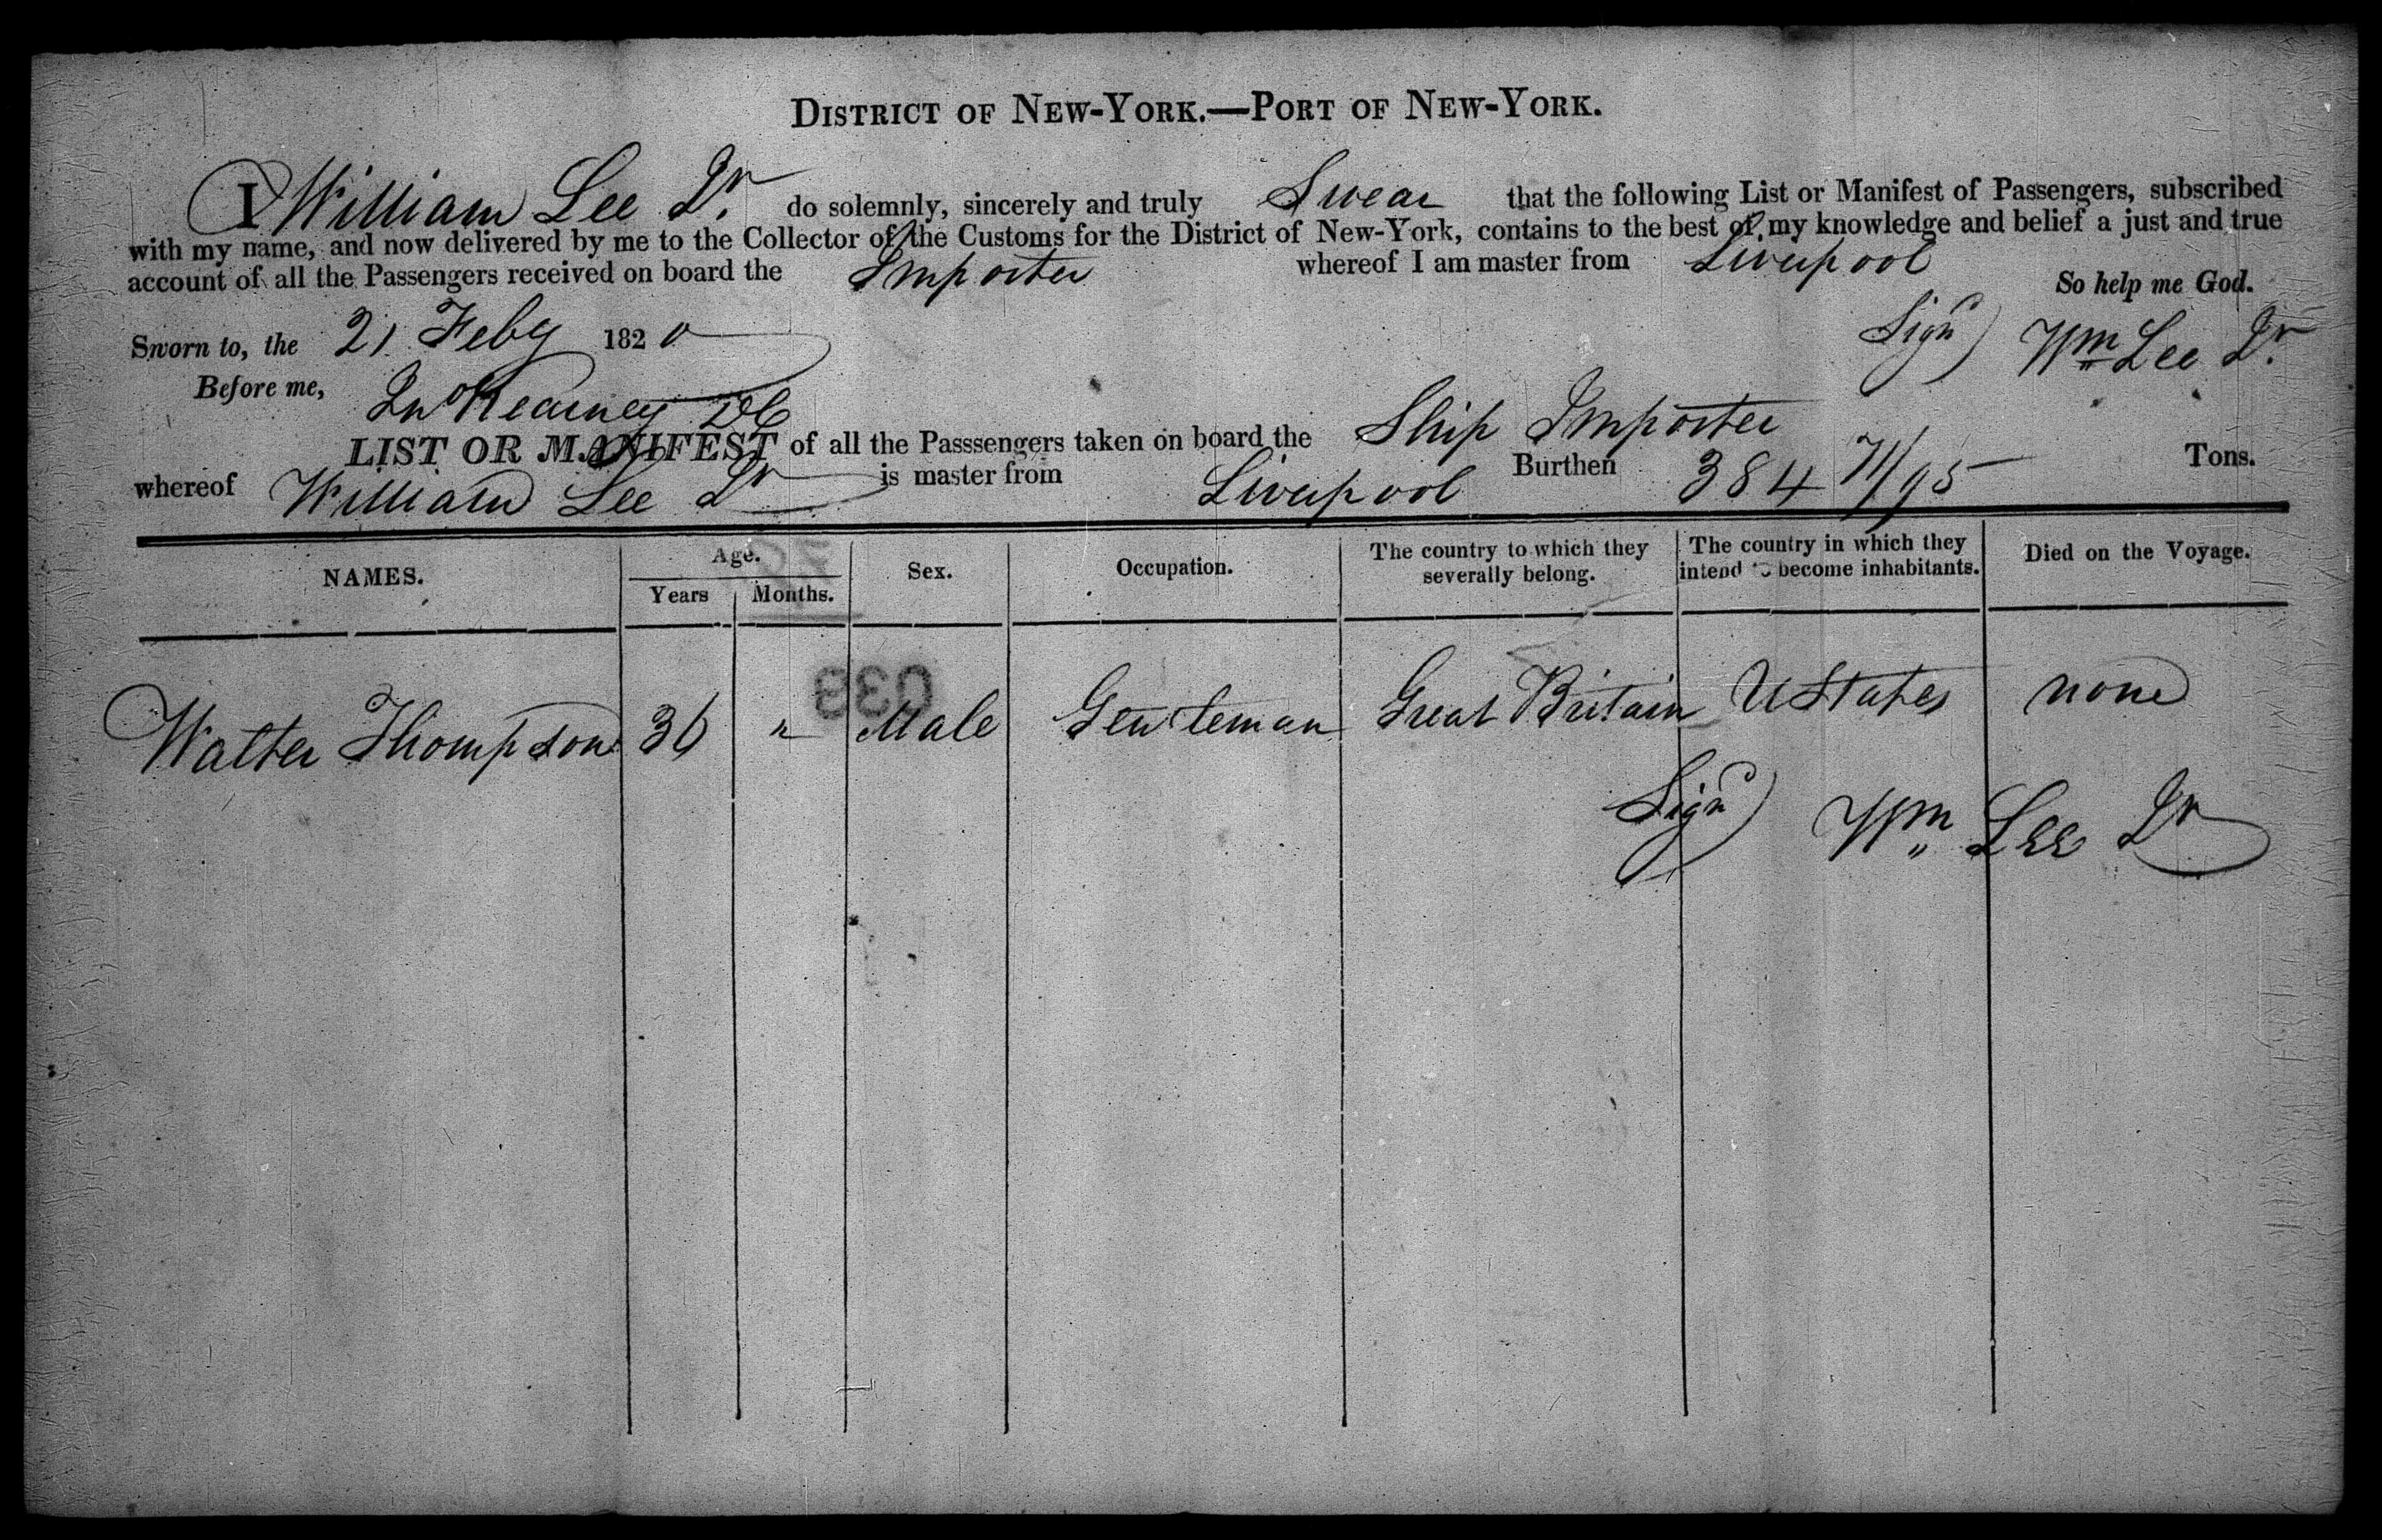 DISTRICT OF NEW-YORK.—PORT OF NEW-YORK.
I William Lee Jr. do solemnly, sincerely and truly Swear that the following List or Manifest of Passengers, subscribed
with my name, and now delivered by me to the Collector of the Customs for the District of New-York, contains to the best of my knowledge and belief a just and true
account of all the Passengers received on board the Importer whereof I am master from Liverpool
So help me God.
Sworn to, the 21 Feby 1820 Sign) Wm Lee Jr.
Before me, Jn Kearney DC
LIST OR MANIFEST of all the Passsengers taken on board the Ship Importer
whereof William Lee Jr is master from Liverpool Burthen 384 71/95 Tons.
NAMES. Age. Sex. Occupation. The country to which they severally belong. The country in which they intend to become inhabitants. Died on the Voyage.
Years Months.
038
Walter Thompson 36 " Male Gentleman Great Britain UStates none
Sign) Wm Lee Jr